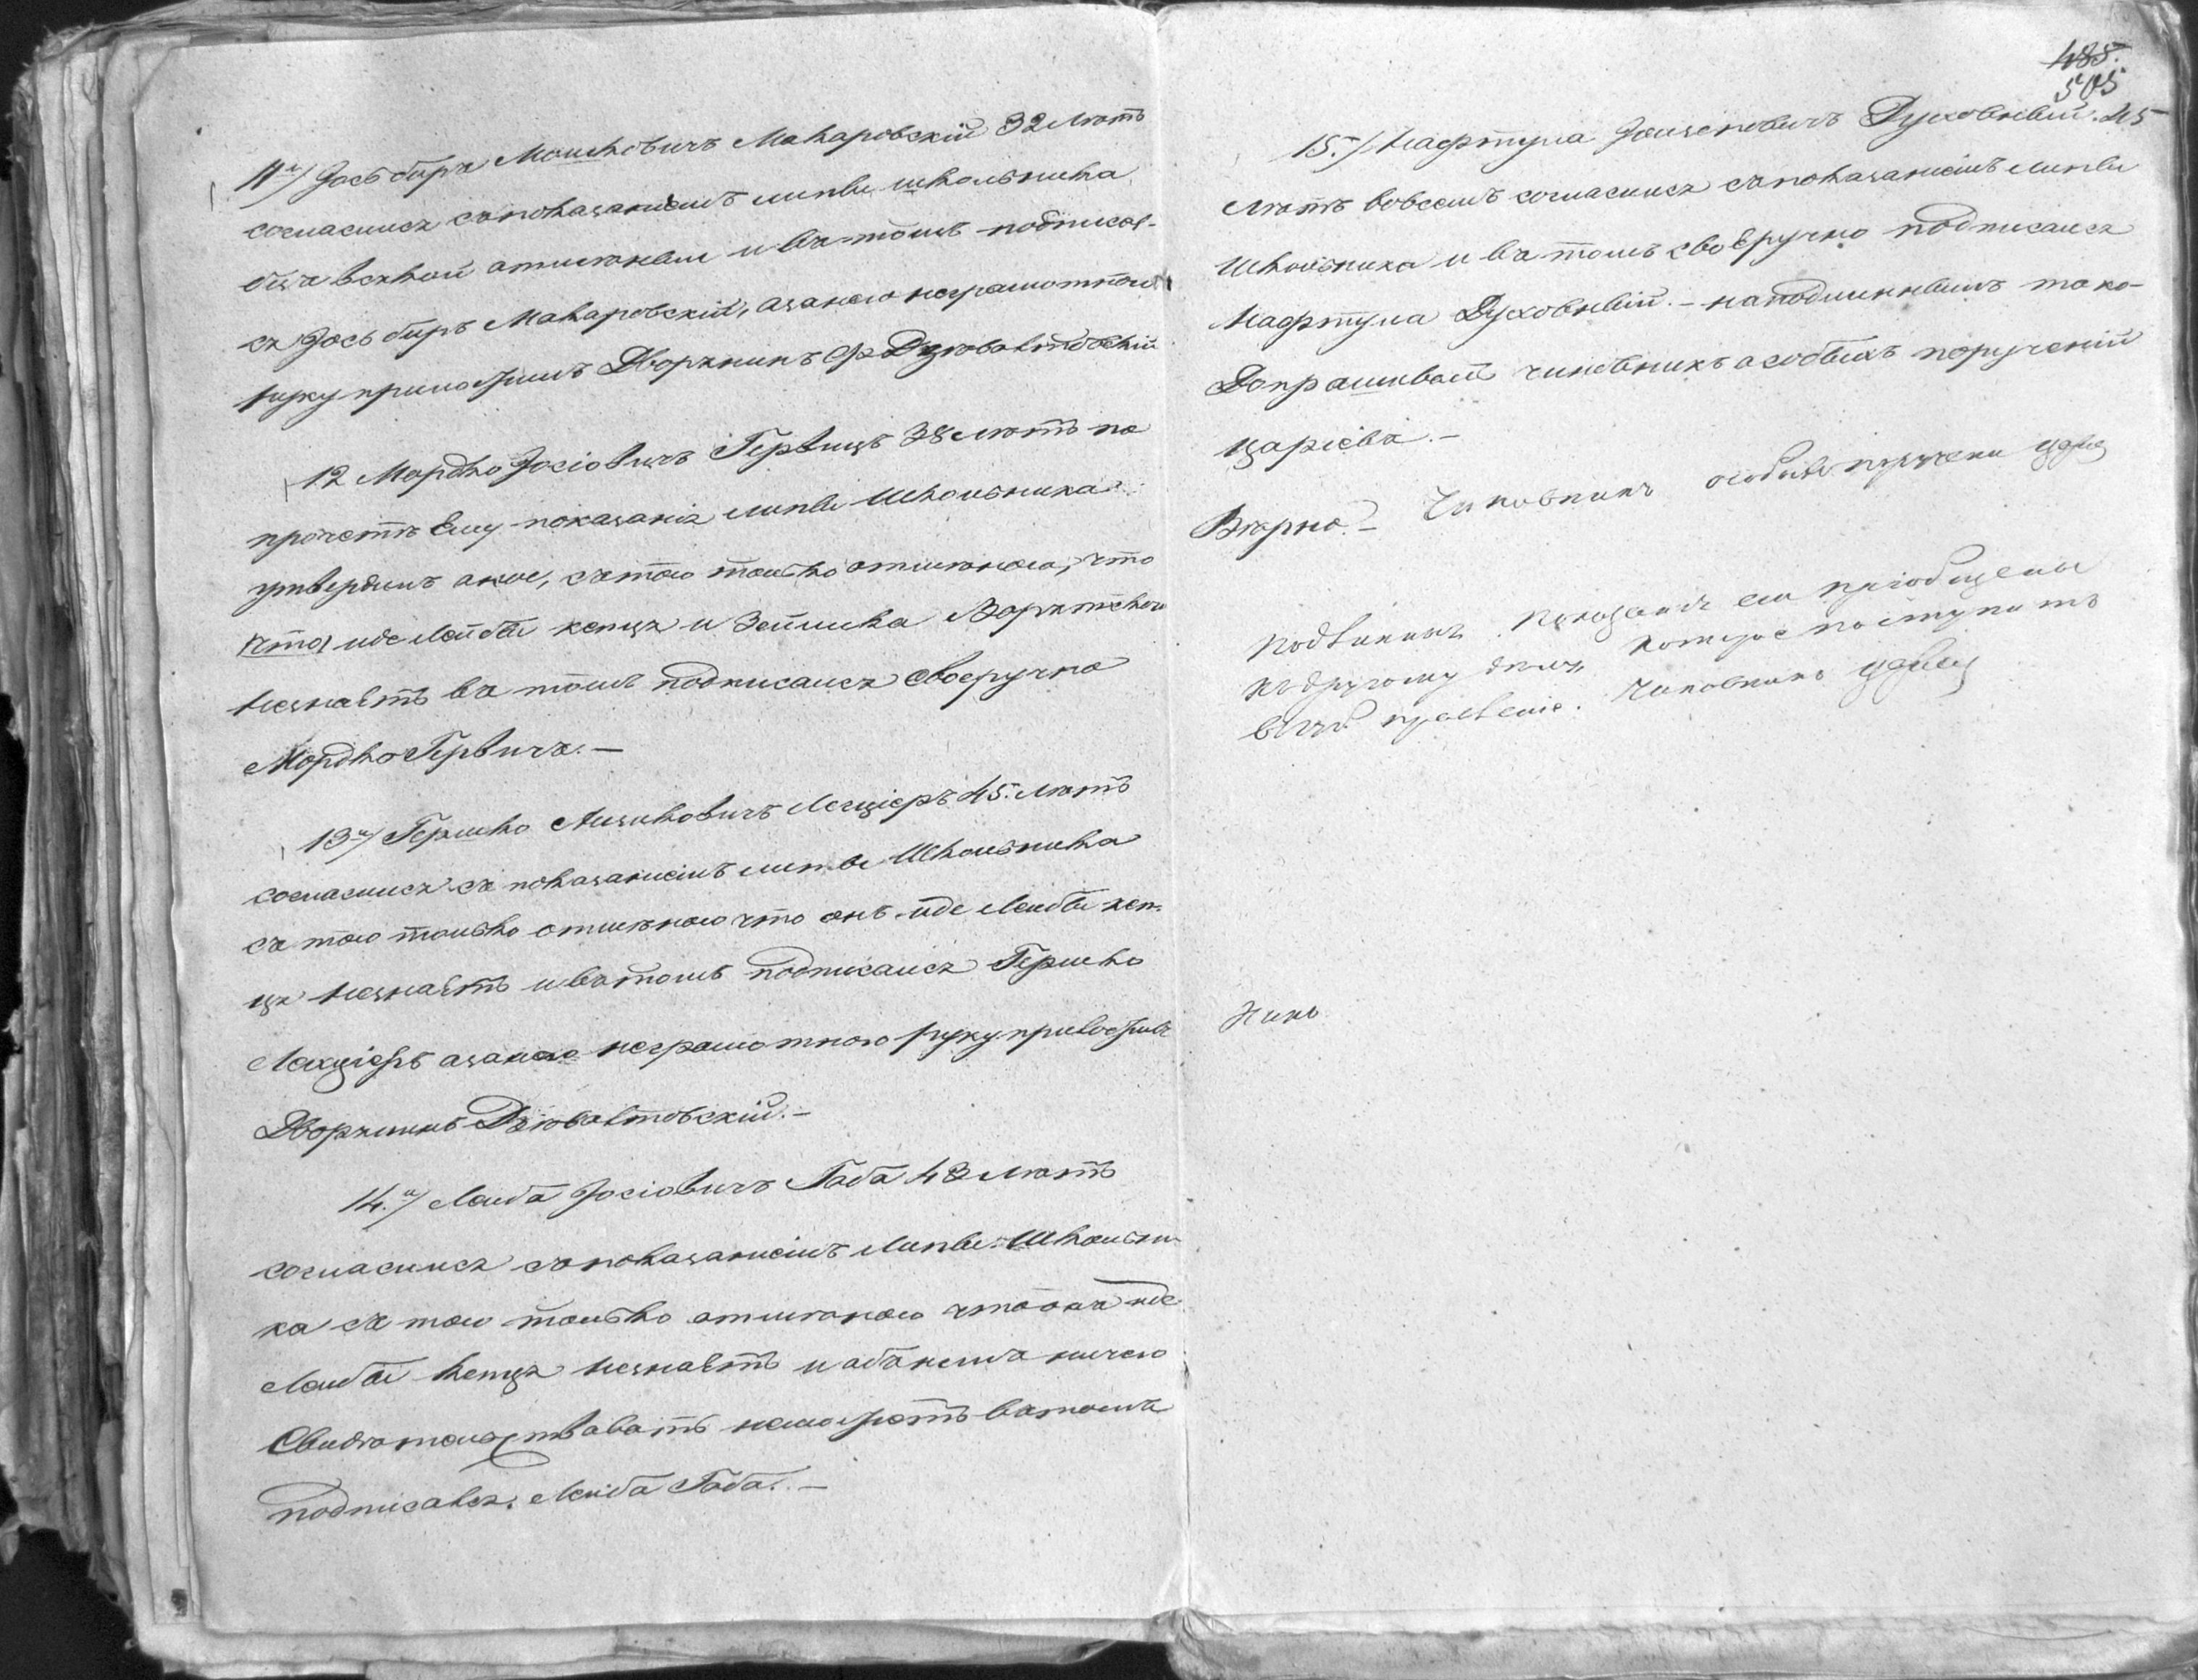 11й) Іось бэръ Мошковичъ Макаровскій 32 лѣтъ
согласился съ показаніемъ липы школьника
безъ всякой отмѣны и въ томъ подписал-
ся Іось биръ Макаровскій, а за него неграмотнаго
руку приложилъ Дворянинъ Ф Дзюбалтовскій
12 Мордко Іосіовичъ Гервицъ 38 лѣтъ по
прочетѣ Ему показанія липы Школьника
утвердилъ оное, съ тою только отмѣною, что
что иде Лейбы кепця и Зейлика Воратской
незнаетъ въ томъ подписался своеручно
Мордко Гервичъ.—
13й) Гершко Лизиковичъ Лехціеръ 45. лѣтъ
согласился съ показаніемъ липы Школьника
съ тою только отмѣною что онъ иде Лейбы кеп-
ця незнаетъ и въ томъ подписался Гершко
Лехціеръ а за него неграмотного руку приложилъ
Дворянинъ Дзюбалтовскій.—
14.й) Лейба Іосіовичъ Габа 48 лѣтъ
согласился съ показаніемъ Липы Школьни-
ка съ тою только отмѣною что онъ иде
Лейбы кепця незнаетъ и объ немъ ничего
Свидѣтельствовать неможетъ въ томъ
подписався. Лейба Габа.—
488.
505
15.) Нафтула Духовный. 45
лѣтъ вовсемъ согласился съ показаніемъ липы
Школьника и въ томъ своеручно подписался
Нафтула Духовный.— на подлинномъ тако-
Допрашивалъ чиновникъ особыхъ порученій
Царіевъ.—
Вѣрно.— Чиновникъ особыхъ порученій
Подлинныя показанія сіи пріобщены
къ другому дѣлу, которое поступитъ
правленіе. Чиновникъ